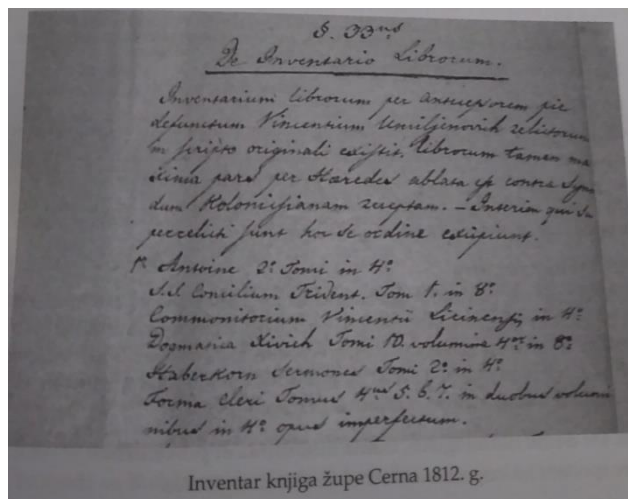 §. 33us
De Inventario Librorum.
Inventarium librorum per Antecessorem pie
defunctum Vincentium relictorum
in scripto originali existit, librorum tamen ma
xima pars per Hæredes ablata est contra Syno
dum Kolonicsianam receptam. – Interim qui su
hoc se ordine excipiunt.
1o Antoine 2o Tomi in 4o
S.S. Concilium Trident. Tom 1. in 8o
Commonitorium Vincentii in 4o
Dogmatica Xivich Tomi 10. volumina 4or in 8o
Haberkorn Sermones Tomi 2o in 4o
Forma Cleri Tomus 4us 5. 6. 7. in duobus volumi
nibus in 4o opus imperfectum.
Inventar knjiga župe Cerna 1812. g.